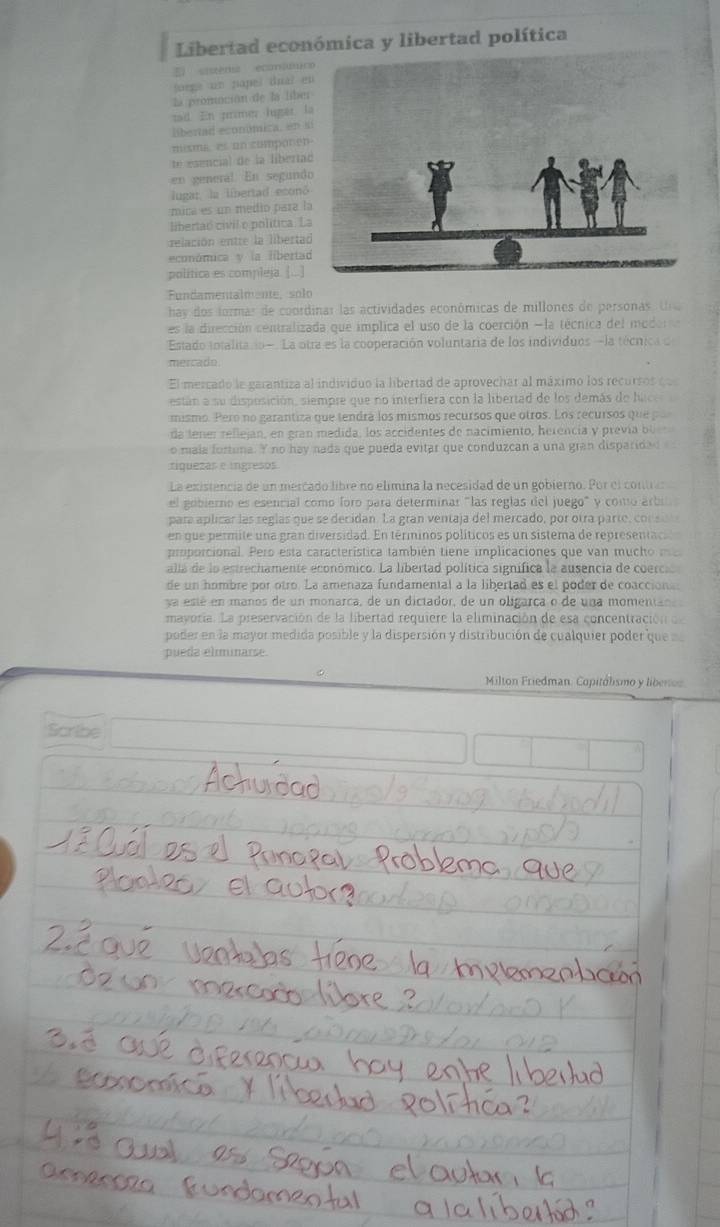 Libertad económica y libertad política
El sistema económico
juega un papel dual en
la promoción de la liber-
tad. En primer lugar, la
libertad económica, en sí
misma, es un componen-
te esencial de la libertad
en general. En segundo
lugar, la libertad econó-
mica es un medio para la
libertad civil o política. La
relación entre la libertad
económica y la libertad
política es compleja. [...]
Fundamentalmente, solo
hay dos formas de coordinar las actividades económicas de millones de personas. Una
es la dirección centralizada que implica el uso de la coerción —la técnica del moderno
Estado totalita io—. La otra es la cooperación voluntaria de los individuos —la técnica
mercado.
El mercado le garantiza al individuo la libertad de aprovechar al máximo los recursos que
están a su disposición, siempre que no interfiera con la libertad de los demás de hacer
mismo. Pero no garantiza que tendrá los mismos recursos que otros. Los recursos que
da tener reflejan, en gran medida, los accidentes de nacimiento, herencia y previa buena
o mala fortuna. Y no hay nada que pueda evitar que conduzcan a una gran disparidad
riquezas e ingresos.
La existencia de un mercado libre no elimina la necesidad de un gobierno. Por el
el gobierno es esencial como foro para determinar "las reglas del juego" y como
para aplicar las reglas que se decidan. La gran ventaja del mercado, por otra parte,
en que permite una gran diversidad. En términos políticos es un sistema de representación
proporcional. Pero esta característica también tiene implicaciones que van mucho
allá de lo estrechamente económico. La libertad política significa la ausencia de coerción
de un hombre por otro. La amenaza fundamental a la libertad es el poder de
ya esté en manos de un monarca, de un dictador, de un oligarca o de una
mayoría. La preservación de la libertad requiere la eliminación de esa concentración
poder en la mayor medida posible y la dispersión y distribución de cualquier poder que
pueda eliminarse.
Milton Friedman. Capitalismo y
Scribe
Actividad
1¿Cuál es el Principal Problema que
plantea el autor?
2.¿que ventajas tiene la implementacion
de un mercado libre?
3.¿ que diferencia hay entre libertad
economica y libertad política?
4.¿ cual es según el autor, la
amenaza fundamental a la libertad?